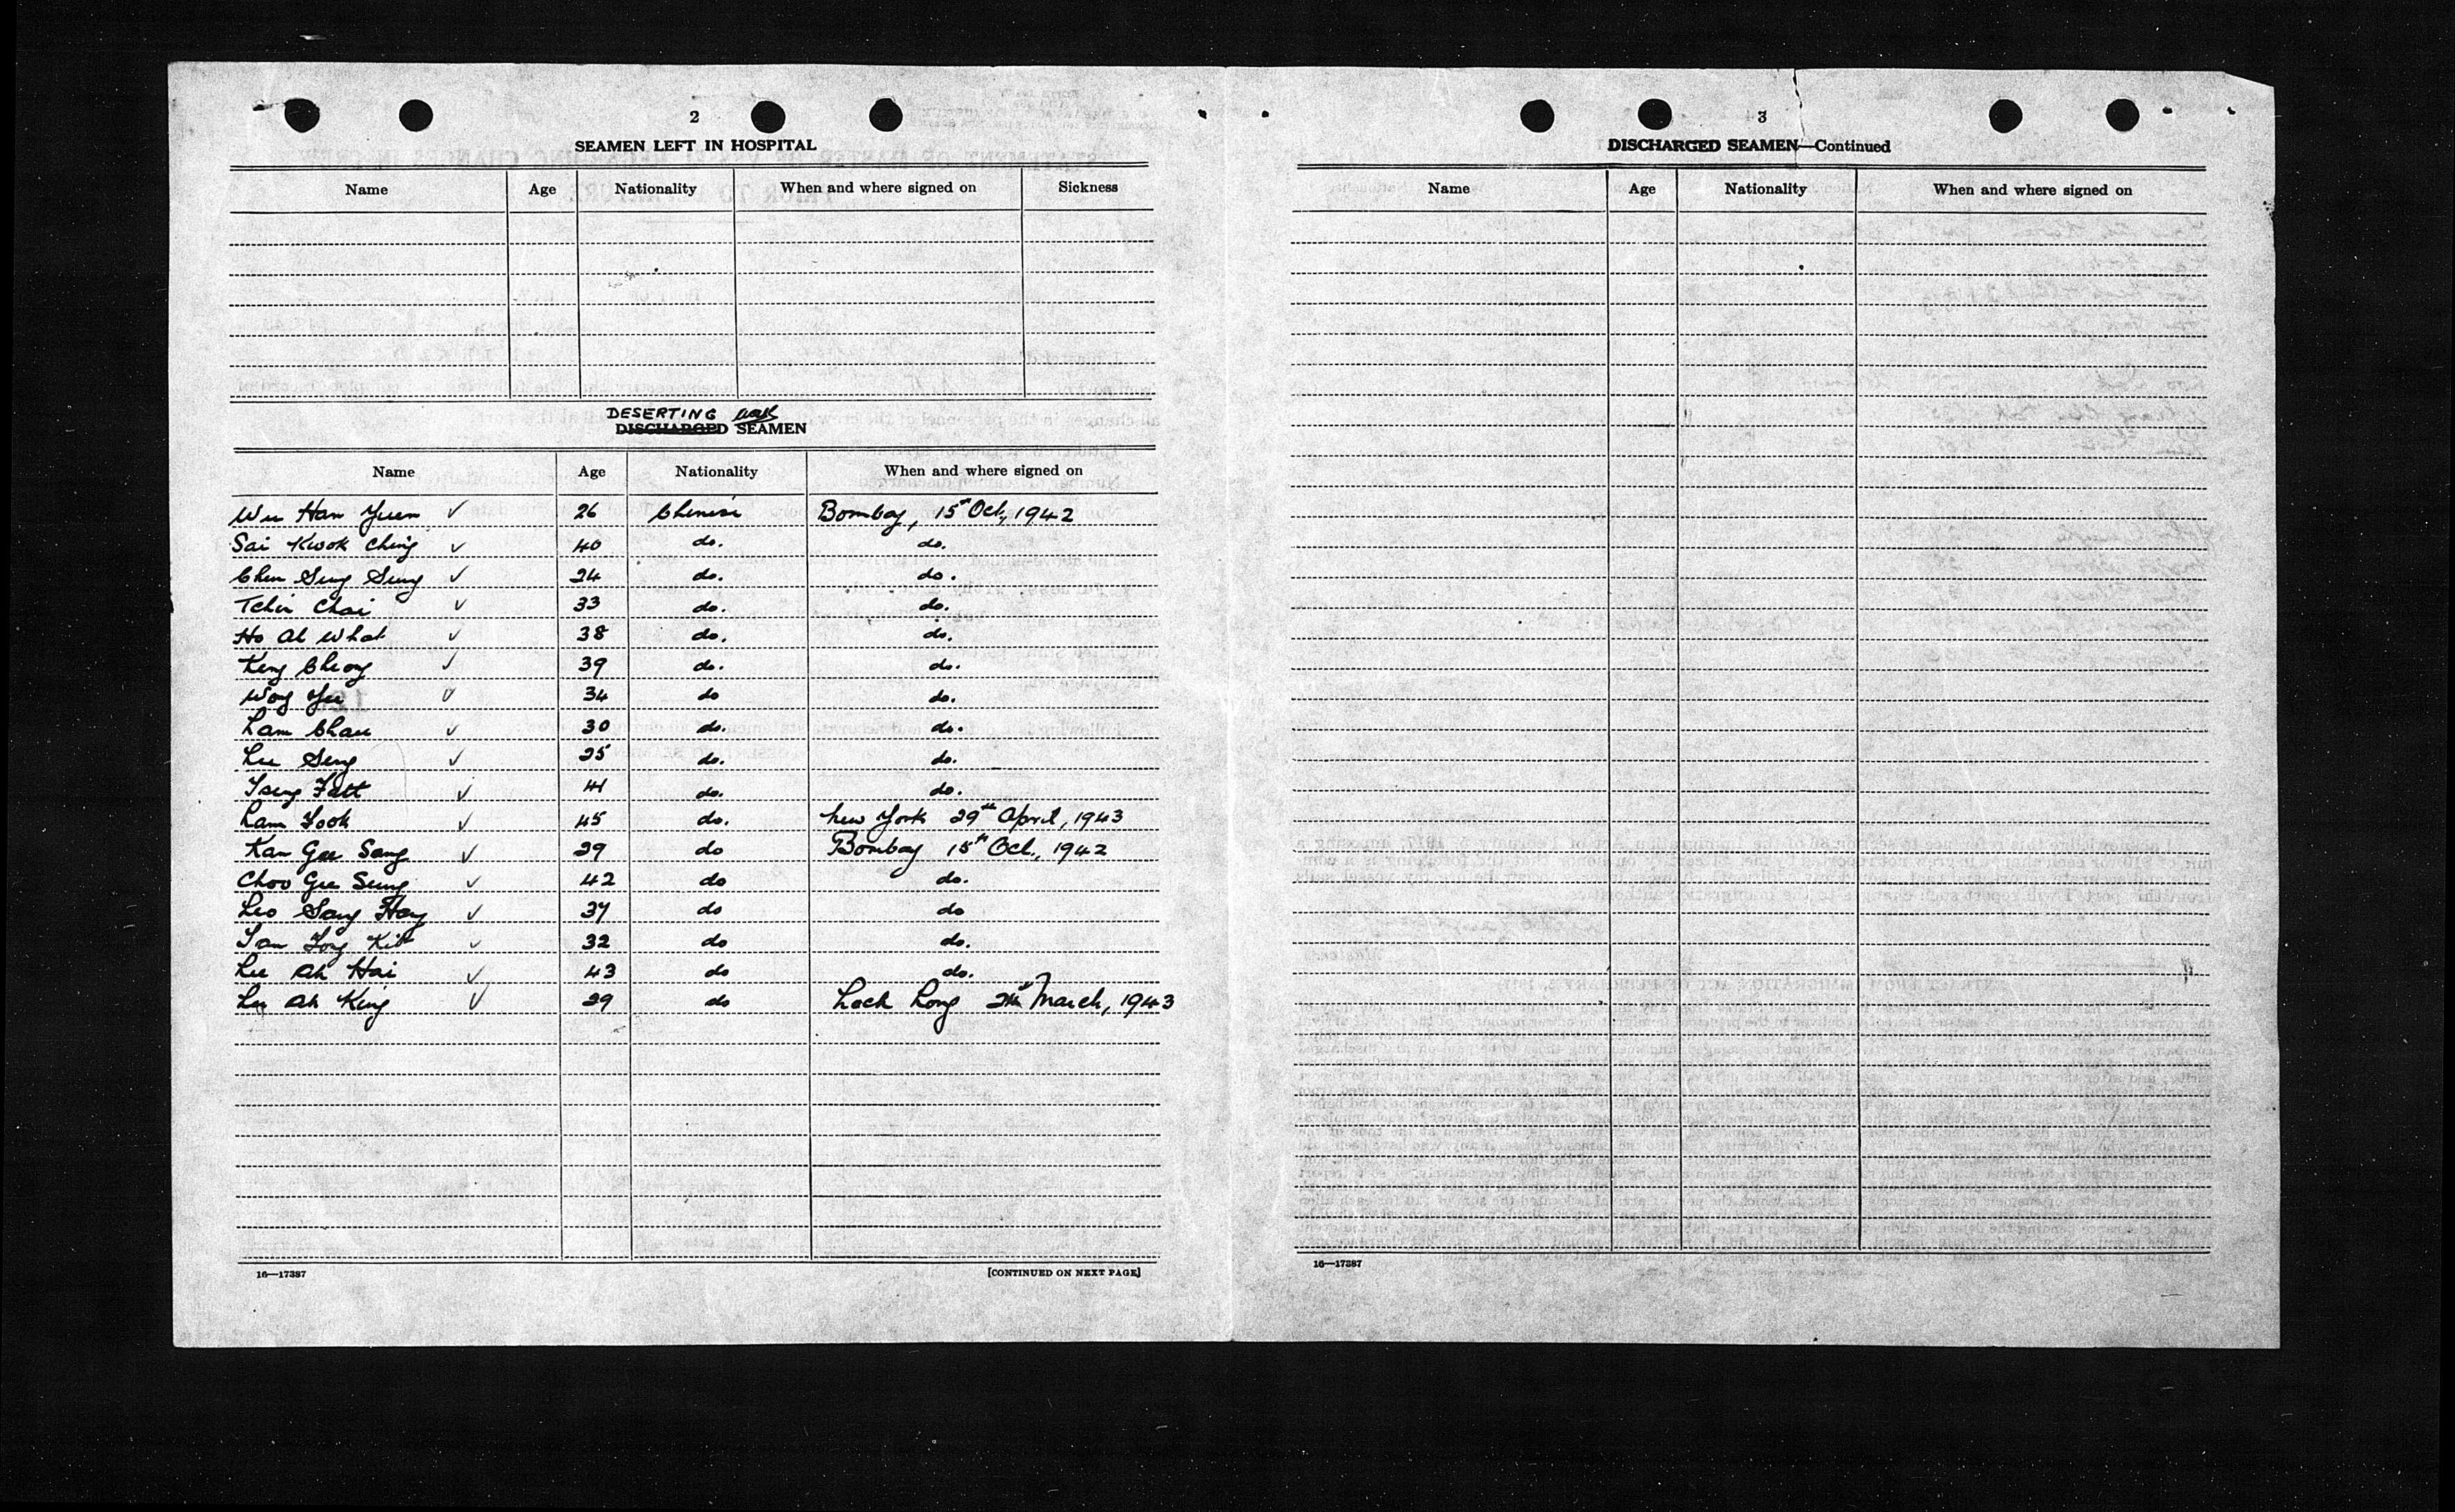 2
SEAMEN LEFT IN HOSPITAL
Name Age Nationality When and where signed on Sickness
DESERTING
DISCHARGED SEAMEN
Name Age Nationality When and where signed on
Wu Han Yuen ✓ 26 Chinese Bombay, 15th Oct, 1942
Sai Kwok Ching ✓ 40 do. do.
Chen Sing Sung ✓ 24 do. do.
Tchin Chai ✓ 33 do. do.
Ho Ah What ✓ 38 do. do.
Keng Cheong ✓ 39 do. do.
Wong Yee ✓ 34 do do.
Lam Chau ✓ 30 do. do.
Lee Seng ✓ 25 do. do.
Tseng Fatt ✓ 41 do. do.
Lam Fook ✓ 45 do. New York 29th April, 1943
Kan Gee Sang ✓ 29 do Bombay 15th Oct., 1942
Choo Gee Seng ✓ 42 do do.
Leo Sang Hoy ✓ 37 do do
Tan Tong Kit ✓ 32 do do.
Lee Ah Hai ✓ 43 do do.
Lee Ah King ✓ 29 do Loch Long March, 1943
16—17387 [CONTINUED ON NEXT PAGE]
3
DISCHARGED SEAMEN—Continued
Name Age Nationality When and where signed on
16—17387